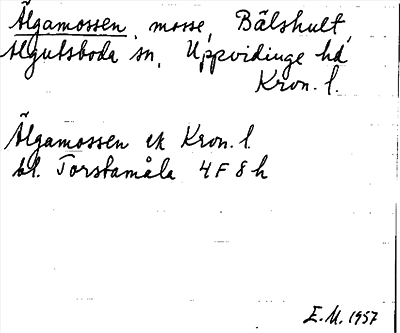 Älgamossen, mosse, Bälshult,
Algutsboda sn, Uppvidinge hd
Kron. l.
Älgamossen ek Kron. l.
bl. Torstamåla 4 F 8 h
E.M. 1957